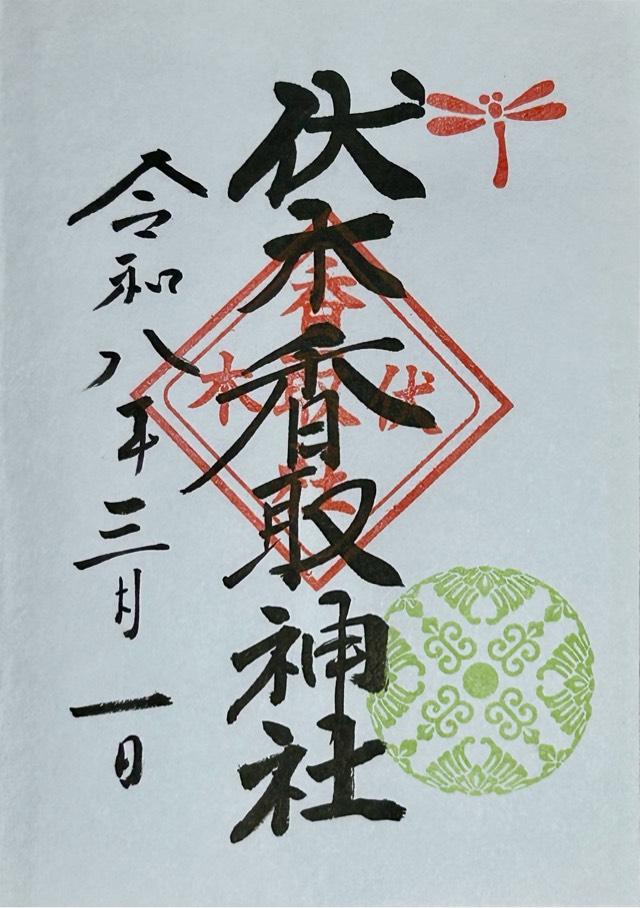 伏木香取神社
令和八年三月一日
伏木
香取社